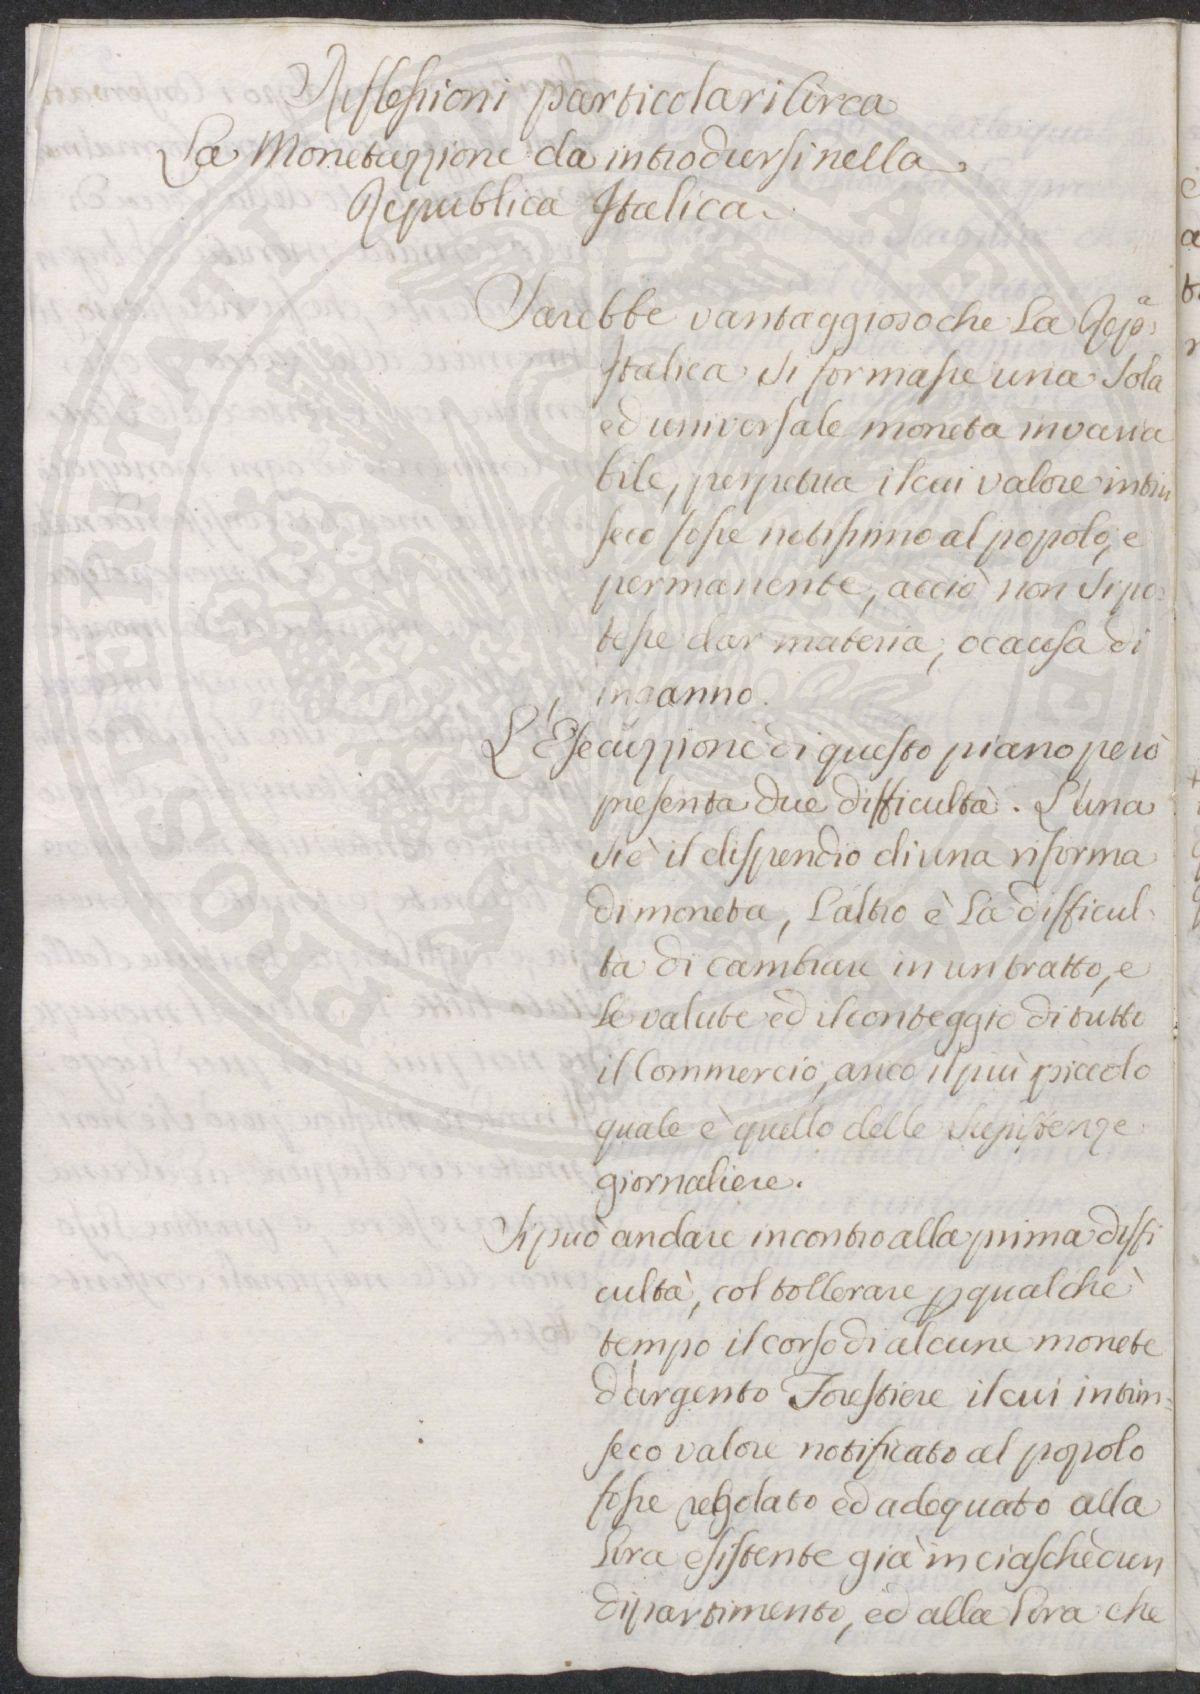 Riflessioni particolari circa
La Monetazzione da introdursi nella
Republica Italica.
Sarebbe vantaggioso che La Repª:
Italica si formasse una Sola
ed universale moneta invaria
bile, perpetua il cui valore intrin
seco fosse notissimo al popolo, e
permanente, acciò non si po-
tesse dar materia, o causa di
inganno.
L'Esecuzzione di questo piano però
presenta due difficultà. L'una
si è il dispendio di una riforma
di moneta, L'altro è La difficul-
tà di cambiare in un tratto, e
Le valute ed il conteggio di tutto
il Commercio, anco il più piccolo
quale è quello delle Susistenze
giornaliere.
Si può andare incontro alla prima diffi
cultà, col tollerare p qualchè
tempo il corso di alcune monete
d'argento Forestiere il cui intrin=
seco valore notificato al popolo
fosse regolato ed adequato alla
Lira esistente già in ciaschèdun
dipartimento, ed alla Lira che
PROSPERITATI PUBLICAE AUGENDAE